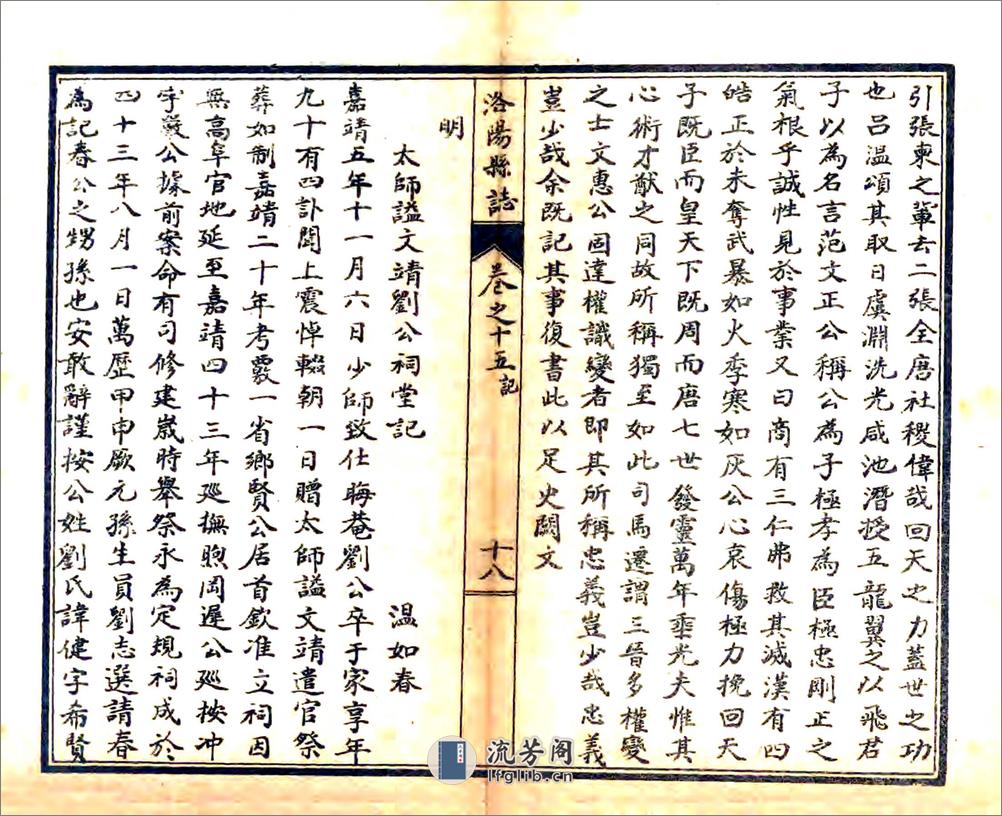 引張柬之輩去二張全唐社稷偉哉回天之力蓋世之功
也呂温頌其取日虞淵洗光咸池潛授五龍翼之以飛君
子以為名言范文正公稱公為子極孝為臣極忠剛正之
氣根乎誠性見於事業又曰商有三仁弗救其滅漢有四
皓正於未奪武暴如火季寒如灰公心哀傷極力挽回天
子既臣而皇天下既周而唐七世發靈萬年垂光夫惟其
心術才猷之同故所稱獨至如此司馬遷謂三晉多權變
之士文惠公固達權識變者即其所稱忠義豈少哉忠義
豈少哉余既記其事復書此以足史闕文
洛陽縣誌
卷之十五記
十八
明
太師謚文靖劉公祠堂記 温如春
嘉靖五年十一月六日少師致仕晦菴劉公卒于家享年
九十有四訃聞上震悼輟朝一日贈太師謚文靖遣官祭
葬如制嘉靖二十年考覈一省鄉賢公居首欽准立祠因
無高阜官地延至嘉靖四十三年廵撫煦岡遲公廵按冲
宇嚴公據前案命有司修建歲時舉祭永為定規祠成於
四十三年八月一日萬歷甲申厥元孫生員劉志選請春
為記春公之甥孫也安敢辭謹按公姓劉氏諱健字希賢
流芳阁
lfglib.cn